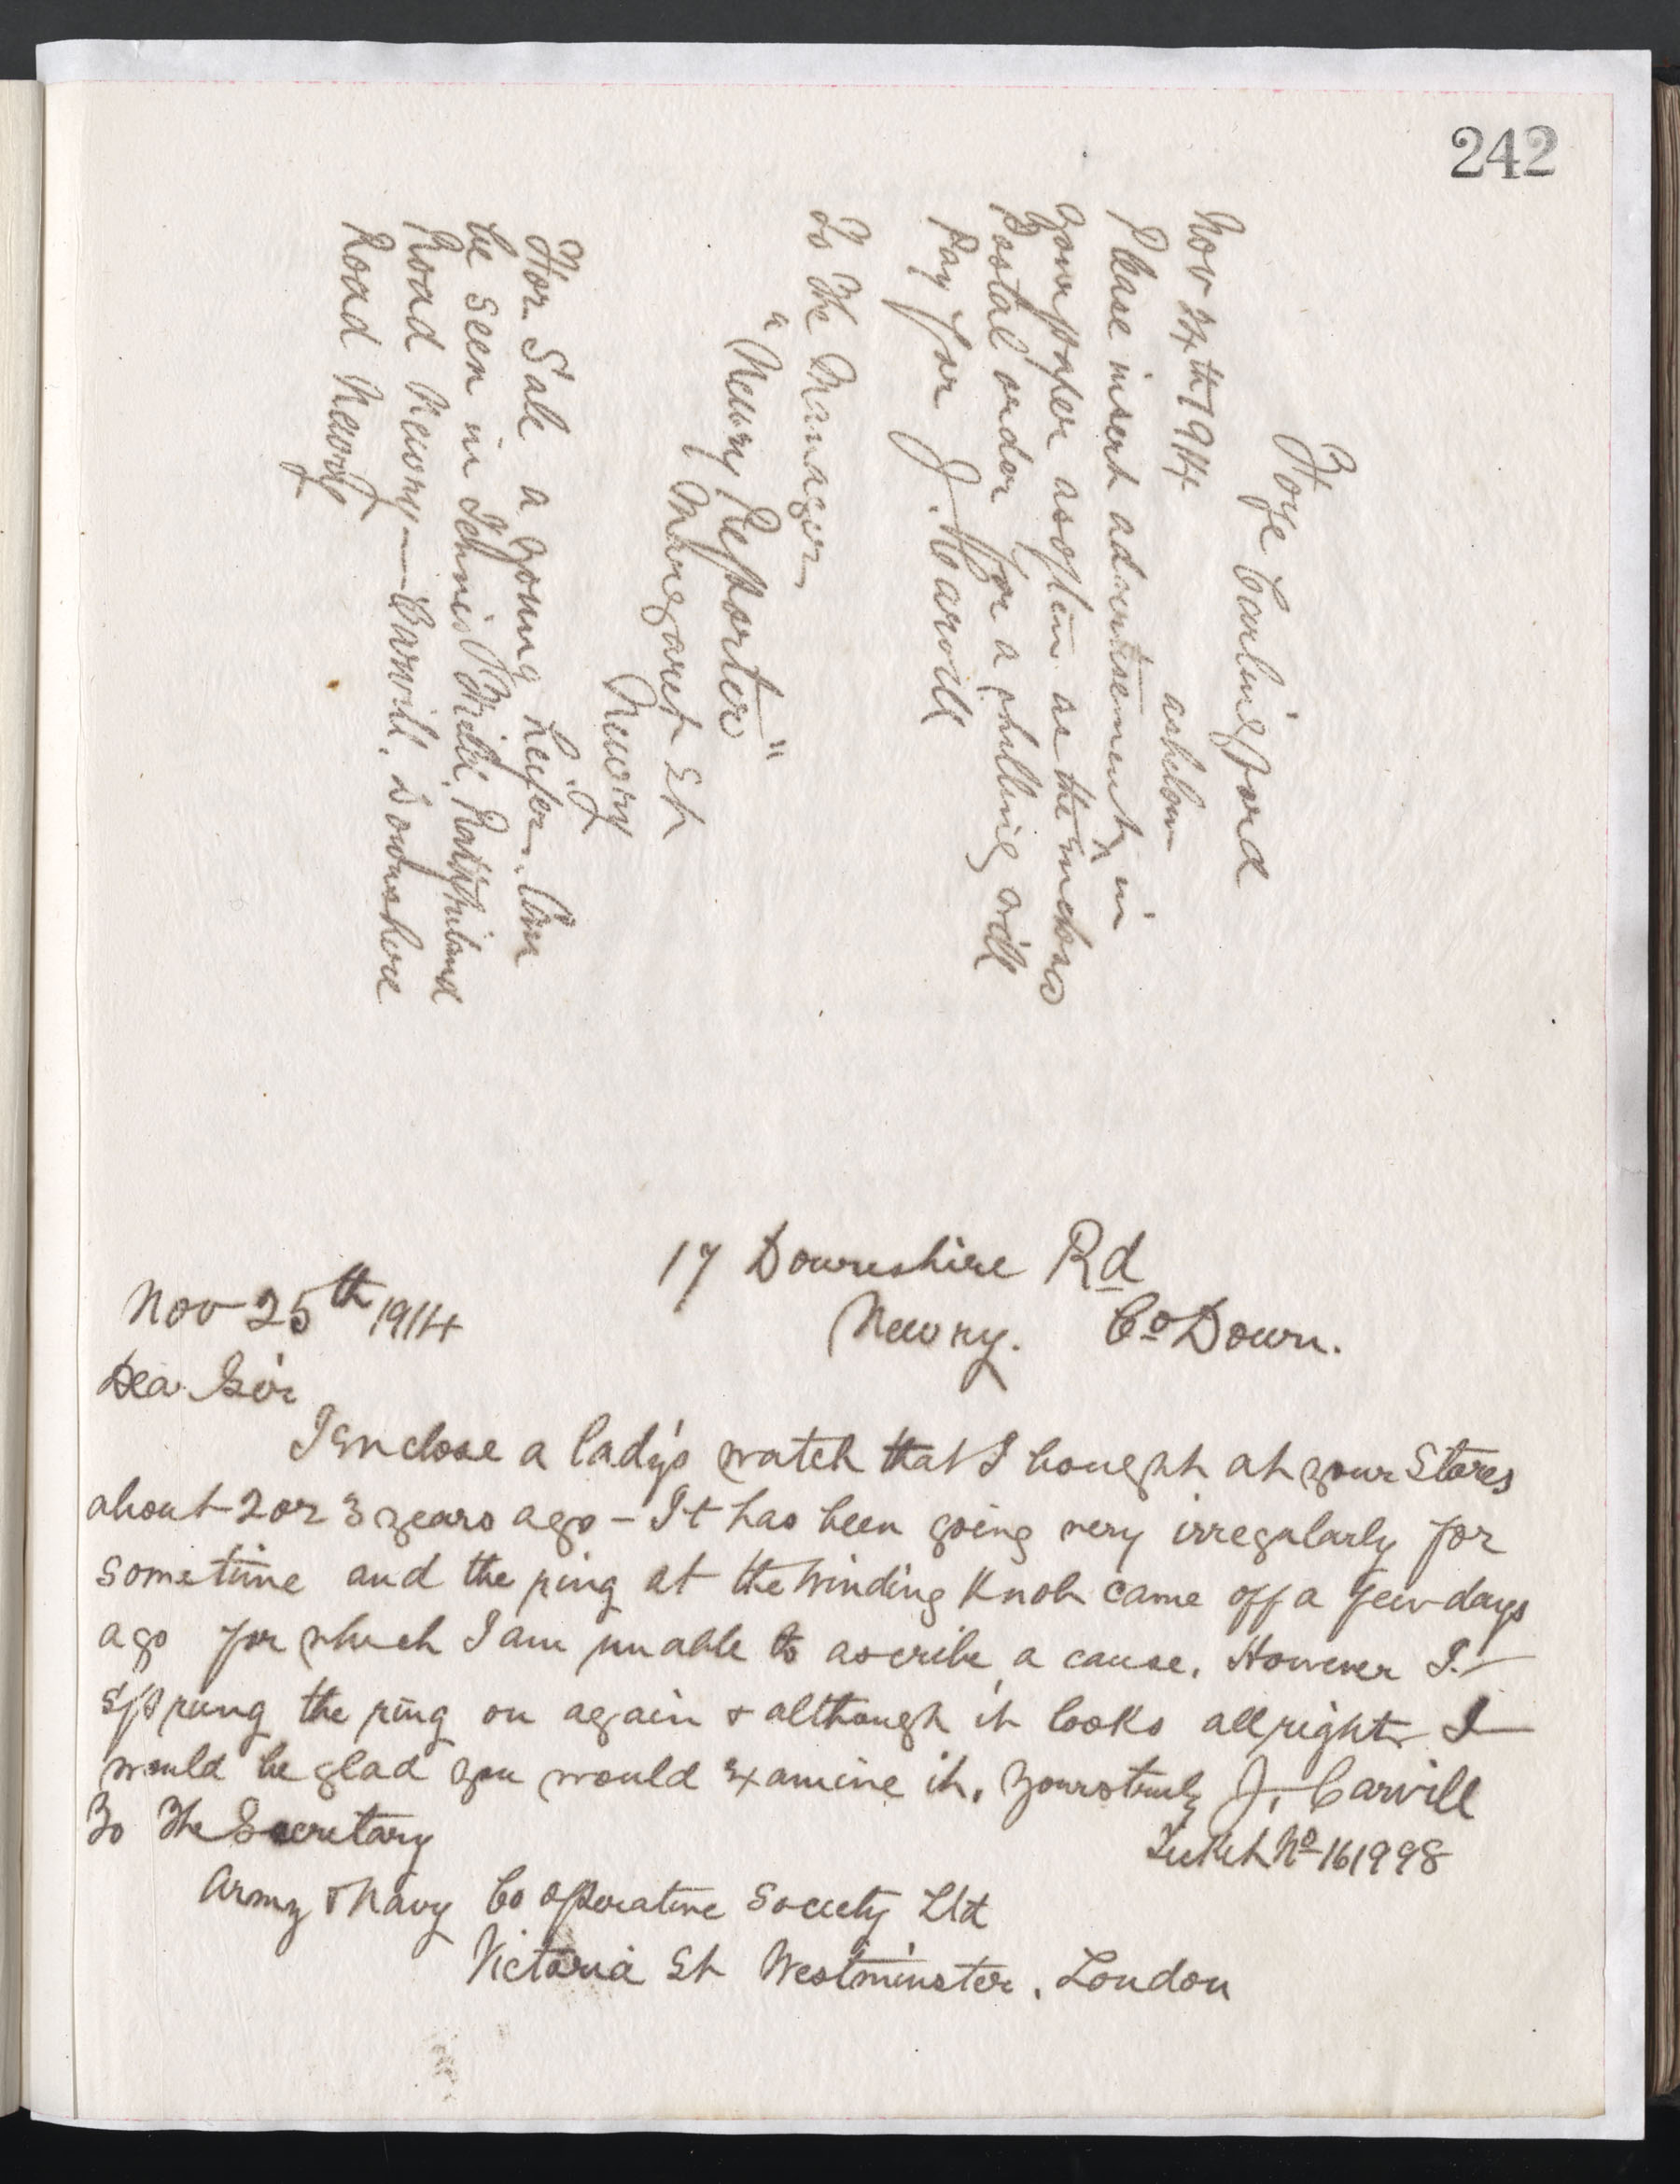 242
Foye Carlingford
Nov 24th 1914
as below
Please insert advertisement ^ in
your paper as often as the inclosed
Postal order for a shilling will
Pay for J. Carvill
To The Manager
"Newry Reporter"
Margaret St
Newry
For Sale a young heifer. Can
be seen in Tennis Field, Rathfriland
Road Newry — Carvill. Downshire
Road Newry
17 Downshire Rd
Nov 25th 1914
Newry. Co Down.
Dear Sir
I enclose a lady's watch that I bought at your Stores
about 2 or 3 years ago - It has been going very irregularly for
sometime and the ring at the winding Knob came off a few days
ago for which I am unable to ascribe a cause. However I
sprung the ring on again & although it looks all right I
would be glad you would examine it. Yours truly J. Carvill
To The Secretary
Ticket No 161998
Army & Navy Co operative Society Ltd
Victoria St Westminster. London